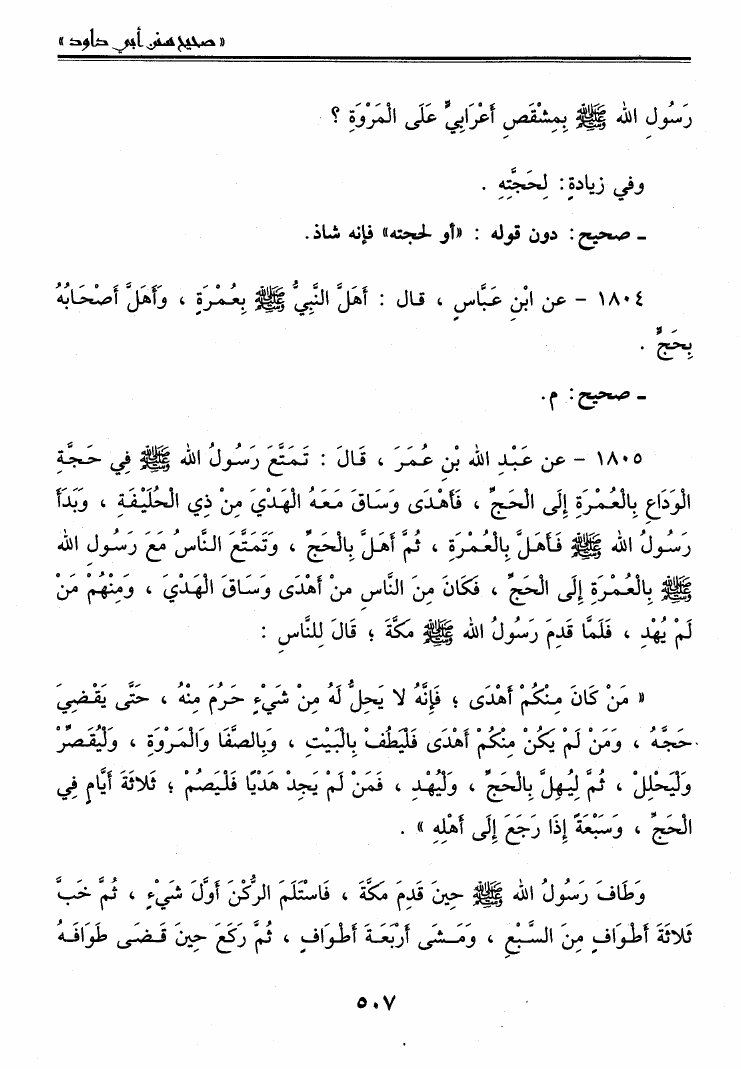 « صحيح سنن أبي داود »
رَسُولِ الله ﷺ بِمِشْقَصِ أَعْرَابِيٍّ عَلَى الْمَرْوَةِ ؟
وفي زيادةٍ: لِحَجَّتِهِ .
ـ صحيح: دون قوله : «أو لحجته» فإنه شاذ.
١٨٠٤ - عن ابْنِ عَبَّاسٍ ، قال : أَهَلَّ النَّبِيُّ ﷺ بِعُمْرَةٍ ، وَأَهَلَّ أَصْحَابُهُ
بِحَجٍّ .
ـ صحيح: م.
١٨٠٥ - عن عَبْدِ الله بْنِ عُمَرَ ، قَالَ : تَمَتَّعَ رَسُولُ الله ﷺ فِي حَجَّةِ
الْوَدَاعِ بِالْعُمْرَةِ إِلَى الْحَجِّ ، فَأَهْدَى وَسَاقَ مَعَهُ الْهَدْيَ مِنْ ذِي الْحُلَيْفَةِ ، وَبَدَأَ
رَسُولُ الله ﷺ فَأَهَلَّ بِالْعُمْرَةِ ، ثُمَّ أَهَلَّ بِالْحَجِّ ، وَتَمَتَّعَ النَّاسُ مَعَ رَسُولِ الله
ﷺ بِالْعُمْرَةِ إِلَى الْحَجِّ ، فَكَانَ مِنَ النَّاسِ مَنْ أَهْدَى وَسَاقَ الْهَدْيَ ، وَمِنْهُمْ مَنْ
لَمْ يُهْدِ ، فَلَمَّا قَدِمَ رَسُولُ الله ﷺ مَكَّةَ ؛ قَالَ لِلنَّاسِ :
« مَنْ كَانَ مِنْكُمْ أَهْدَى ؛ فَإِنَّهُ لا يَحِلُّ لَهُ مِنْ شَيْءٍ حَرُمَ مِنْهُ ، حَتَّى يَقْضِيَ
حَجَّهُ ، وَمَنْ لَمْ يَكُنْ مِنْكُمْ أَهْدَى فَلْيَطُفْ بِالْبَيْتِ ، وَبِالصَّفَا وَالْمَرْوَةِ ، وَلْيُقَصِّرْ
وَلْيَحْلِلْ ، ثُمَّ لِيُهِلَّ بِالْحَجِّ ، وَلْيُهْدِ ، فَمَنْ لَمْ يَجِدْ هَدْيًا فَلْيَصُمْ ؛ ثَلاثَةَ أَيَّامٍ فِي
الْحَجِّ ، وَسَبْعَةً إِذَا رَجَعَ إِلَى أَهْلِهِ » .
وَطَافَ رَسُولُ الله ﷺ حِينَ قَدِمَ مَكَّةَ ، فَاسْتَلَمَ الرُّكْنَ أَوَّلَ شَيْءٍ ، ثُمَّ خَبَّ
ثَلاثَةَ أَطْوَافٍ مِنَ السَّبْعِ ، وَمَشَى أَرْبَعَةَ أَطْوَافٍ ، ثُمَّ رَكَعَ حِينَ قَضَى طَوَافَهُ
٥٠٧